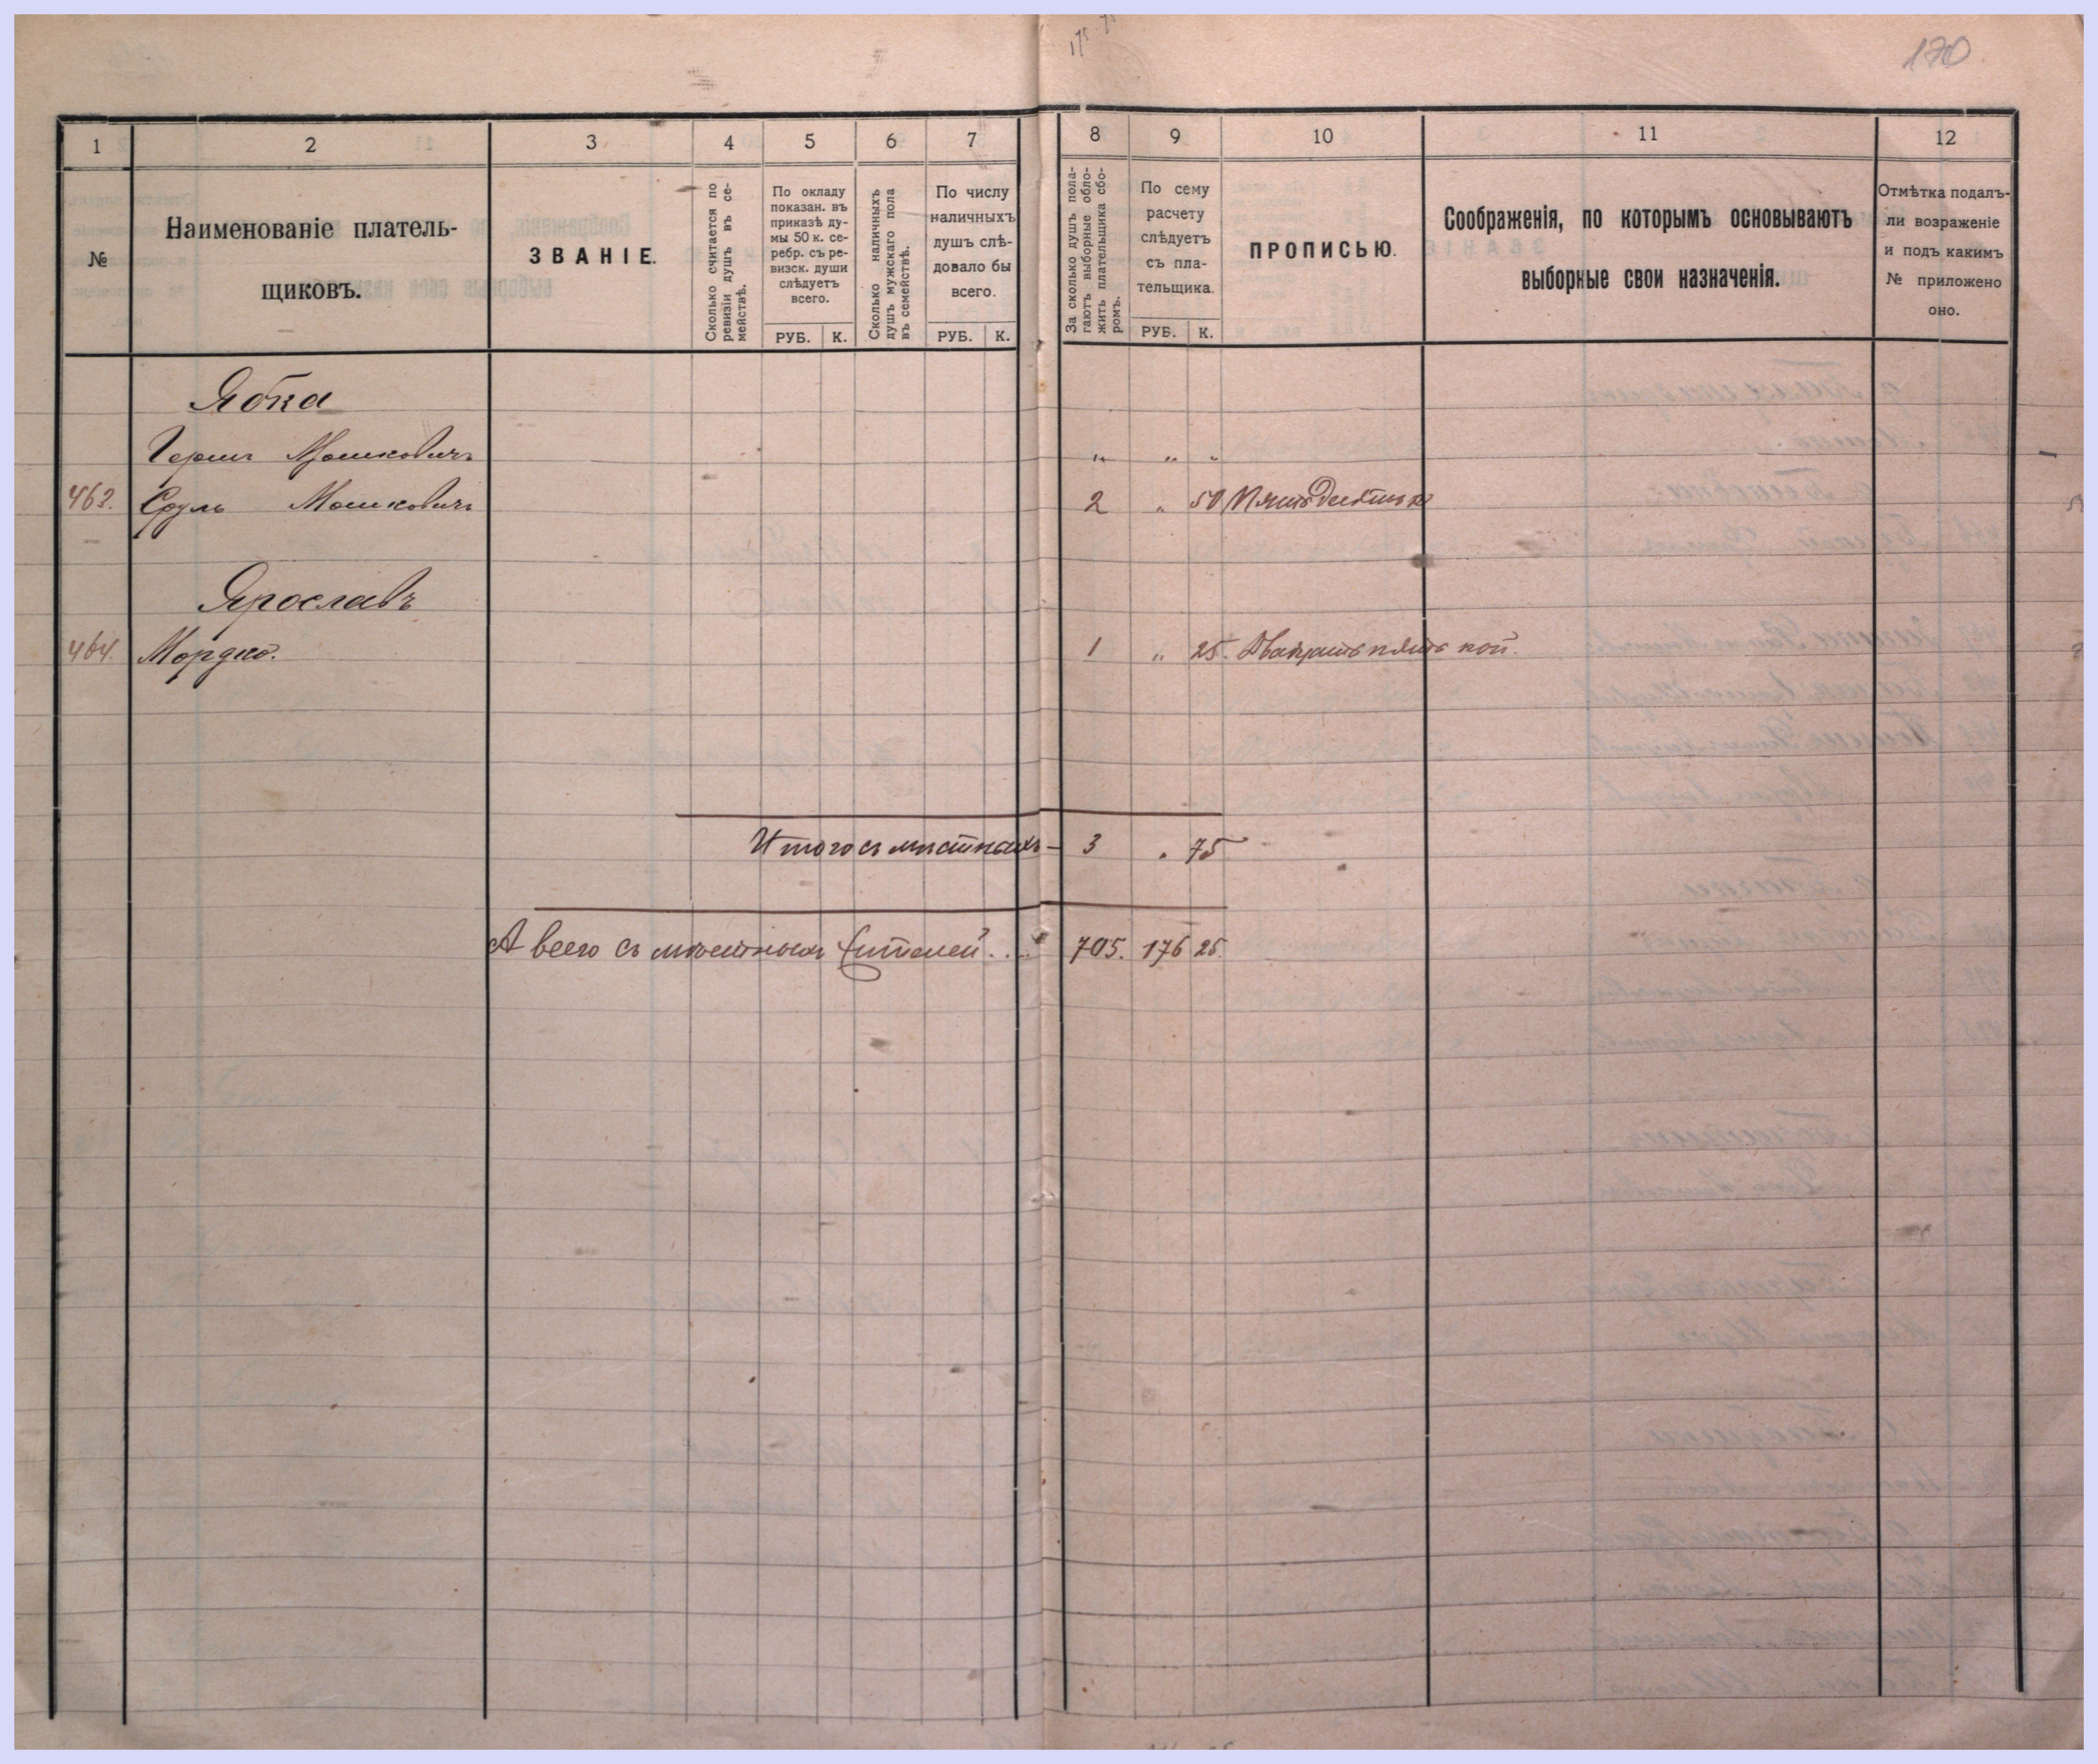 170
1 2 3 4 5 6 7 8 9 10 11 12
№
Наименованіе платель-
щиковъ.
ЗВАНІЕ.
Сколько считается по
ревизіи душъ въ се-
мействѣ.
По окладу
показан. въ
приказѣ ду-
мы 50 к. се-
ребр. съ ре-
визск. души
слѣдуетъ
всего.
РУБ. К.
Сколько наличныхъ
душъ мужскаго пола
въ семействѣ.
По числу
наличныхъ
душъ слѣ-
довало бы
всего.
РУБ. К.
За сколько душъ пола-
гаютъ выборные обло-
жить плательщика сбо-
ромъ.
По сему
расчету
слѣдуетъ
съ пла-
тельщика.
РУБ. К.
ПРОПИСЬЮ.
Соображенія, по которымъ основываютъ
выборные свои назначенія.
Отмѣтка подалъ-
ли возраженіе
и подъ какимъ
№ приложено
оно.
Ябка
Гершъ Мошковичъ " " "
463. Сруль Мошковичъ 2 " 50 Пятьдесятъ к
Ярославъ
464. Мордко. 1 " 25. Двадцать пять коп.
Итого съ мѣстныхъ - 3 " 75
А всего съ мѣстныхъ жителей . . . 705. 176 25.